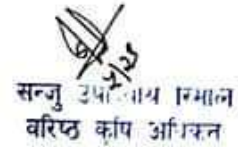 २/२५
सन्जु उपाध्याय रिमाल
वरिष्ठ कृषि अधिकृत